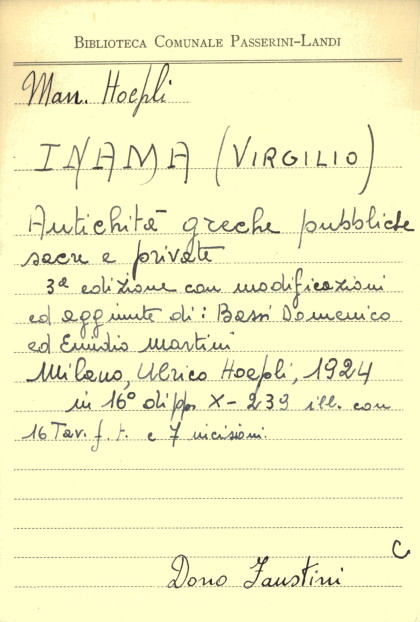 BIBLIOTECA COMUNALE PASSERINI-LANDI
Man. Hoepli
INAMA (VIRGILIO)
Antichità greche pubbliche
sacre e private
3ª edizione con modificazioni
ed aggiunte di: Bassi Domenico
ed Emidio Martini
Milano, Ulrico Hoepli, 1924
in 16° di pp. X-239 ill. con
16 Tav. f. t. e 7 incisioni.
C
Dono Faustini